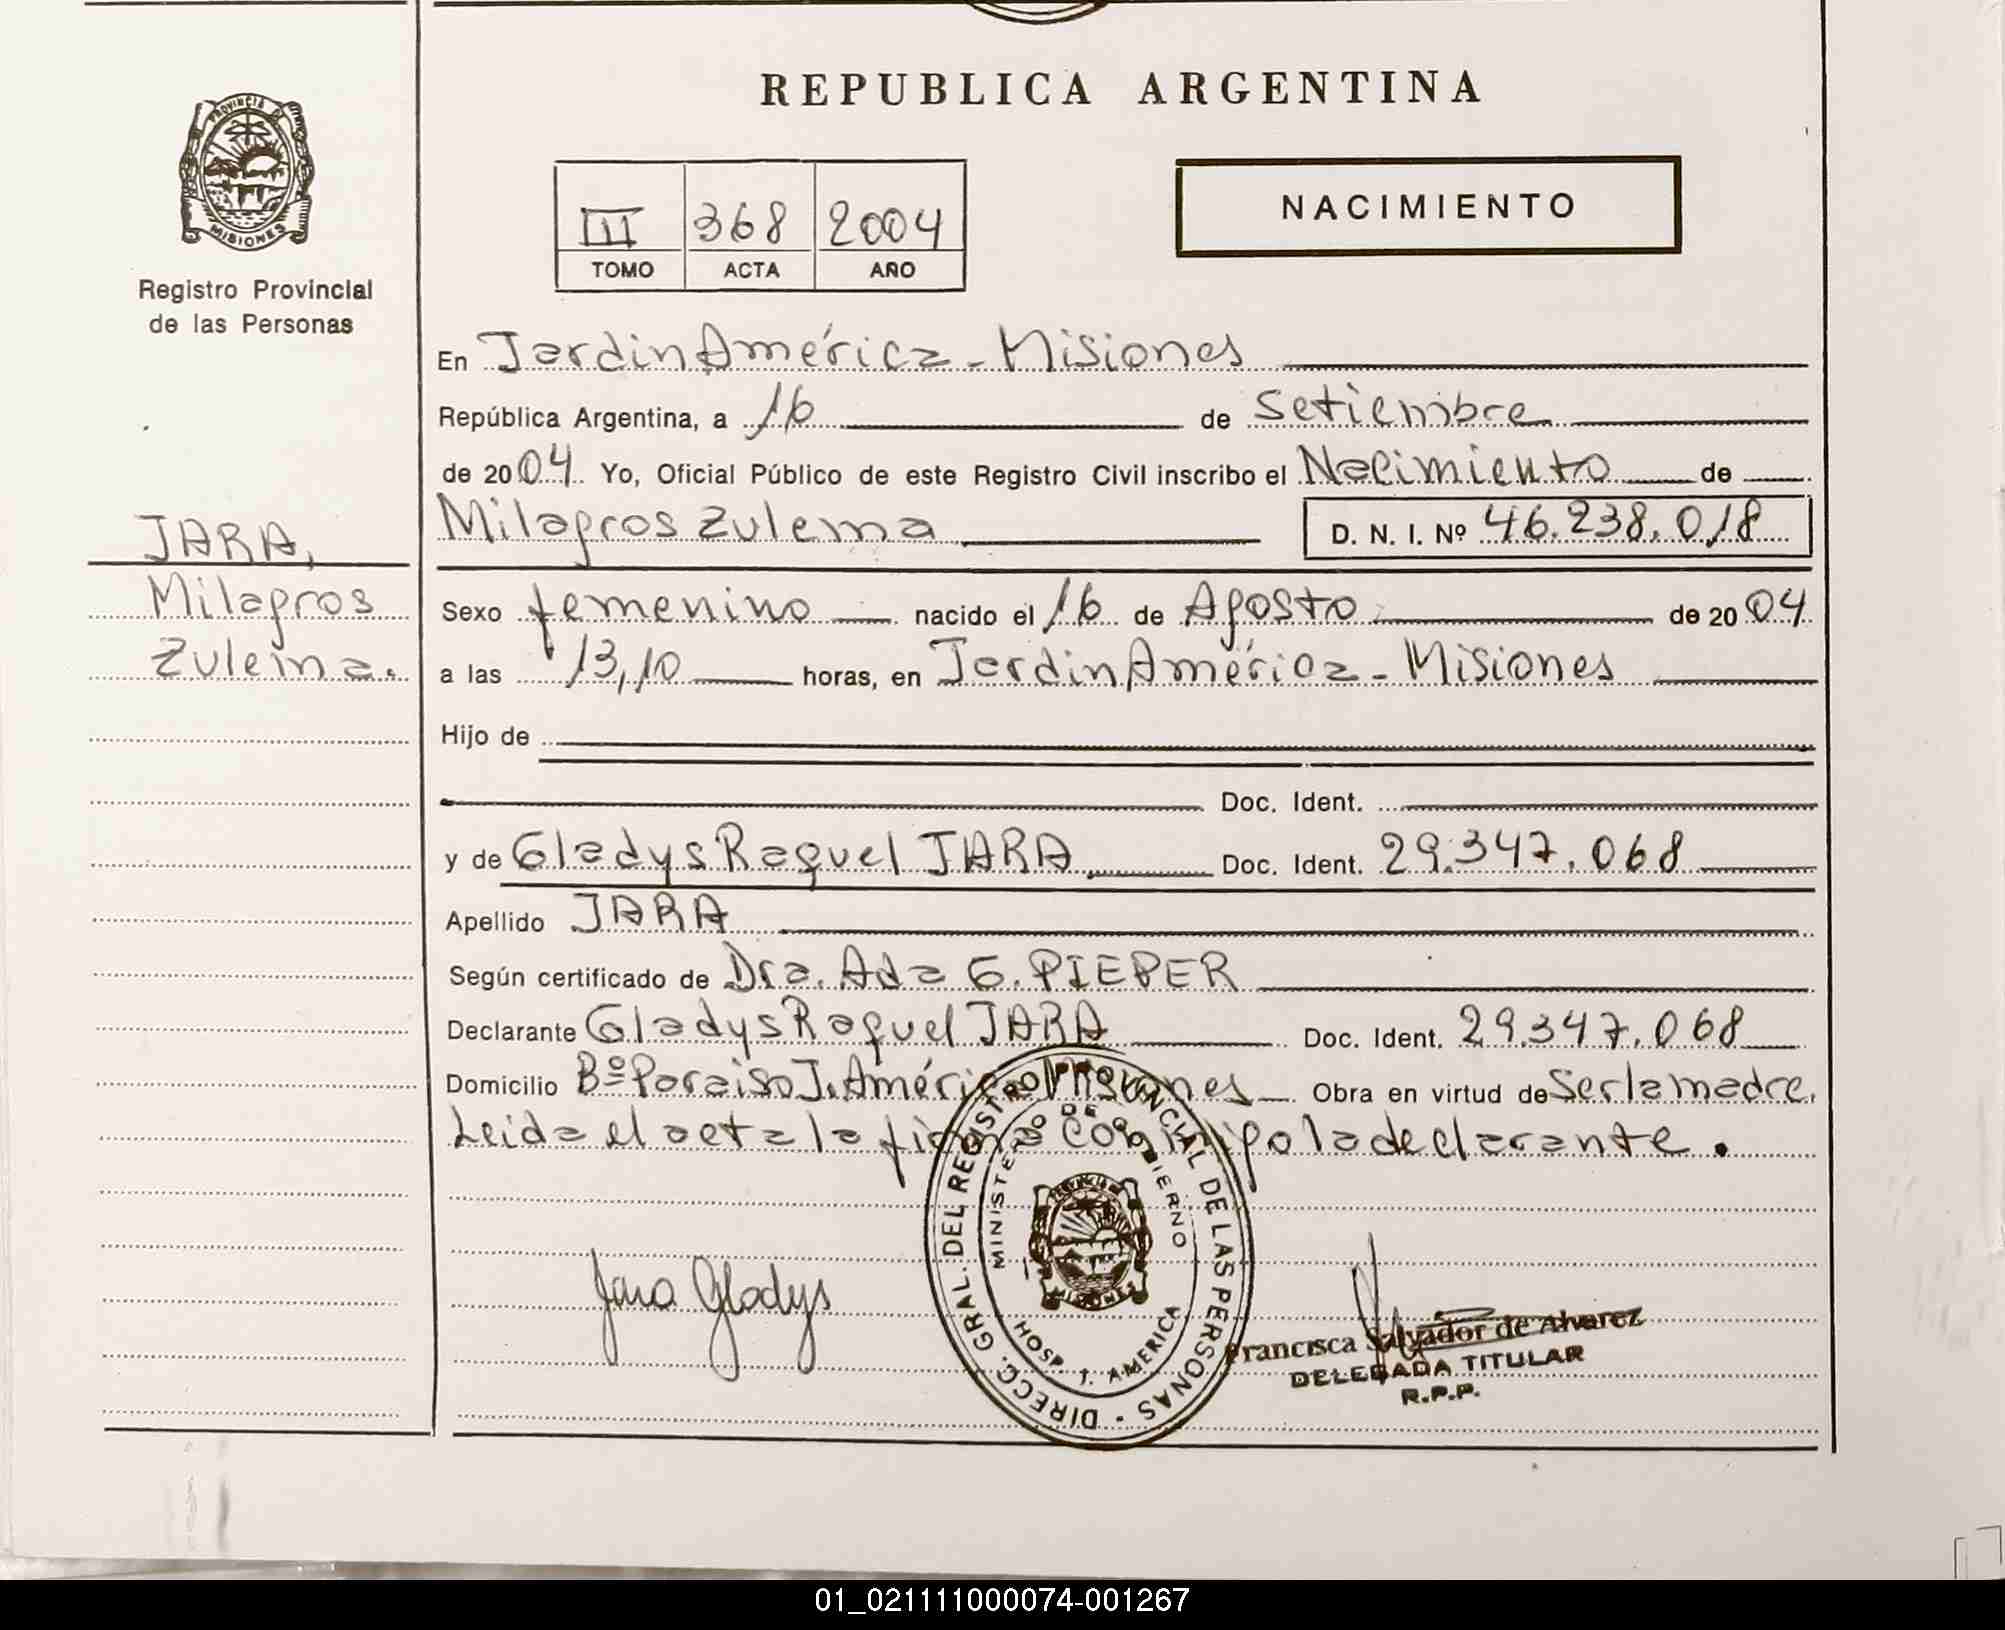 REPUBLICA ARGENTINA
PROVINCIA DE
MISIONES
Registro Provincial
de las Personas
III 368 2004
TOMO ACTA AÑO
NACIMIENTO
JARA,
Milagros
Zulema.
En Jardin América - Misiones
República Argentina, a 16 de Setiembre
de 2004. Yo, Oficial Público de este Registro Civil inscribo el Nacimiento de
Milagros Zulema D. N. I. Nº 46.238.018
Sexo femenino nacido el 16 de Agosto de 2004
a las 13,10 horas, en Jardin América - Misiones
Hijo de
Doc. Ident.
y de Gladys Raquel JARA Doc. Ident. 29.347.068
Apellido JARA
Según certificado de Dra. Ada G. PIEPER
Declarante Gladys Raquel JARA Doc. Ident. 29.347.068
Domicilio Bº Paraiso J. América Misiones Obra en virtud de Ser la madre.
Leida el acta la firma conmigo la declarante.
Jara Gladys
DIRECC. GRAL. DEL REGISTRO PROVINCIAL DE LAS PERSONAS
MINISTERIO DE GOBIERNO
PROVINCIA DE
MISIONES
HOSP. J. AMERICA
Francisca Salvador de Alvarez
DELEGADA TITULAR
R.P.P.
01_021111000074-001267